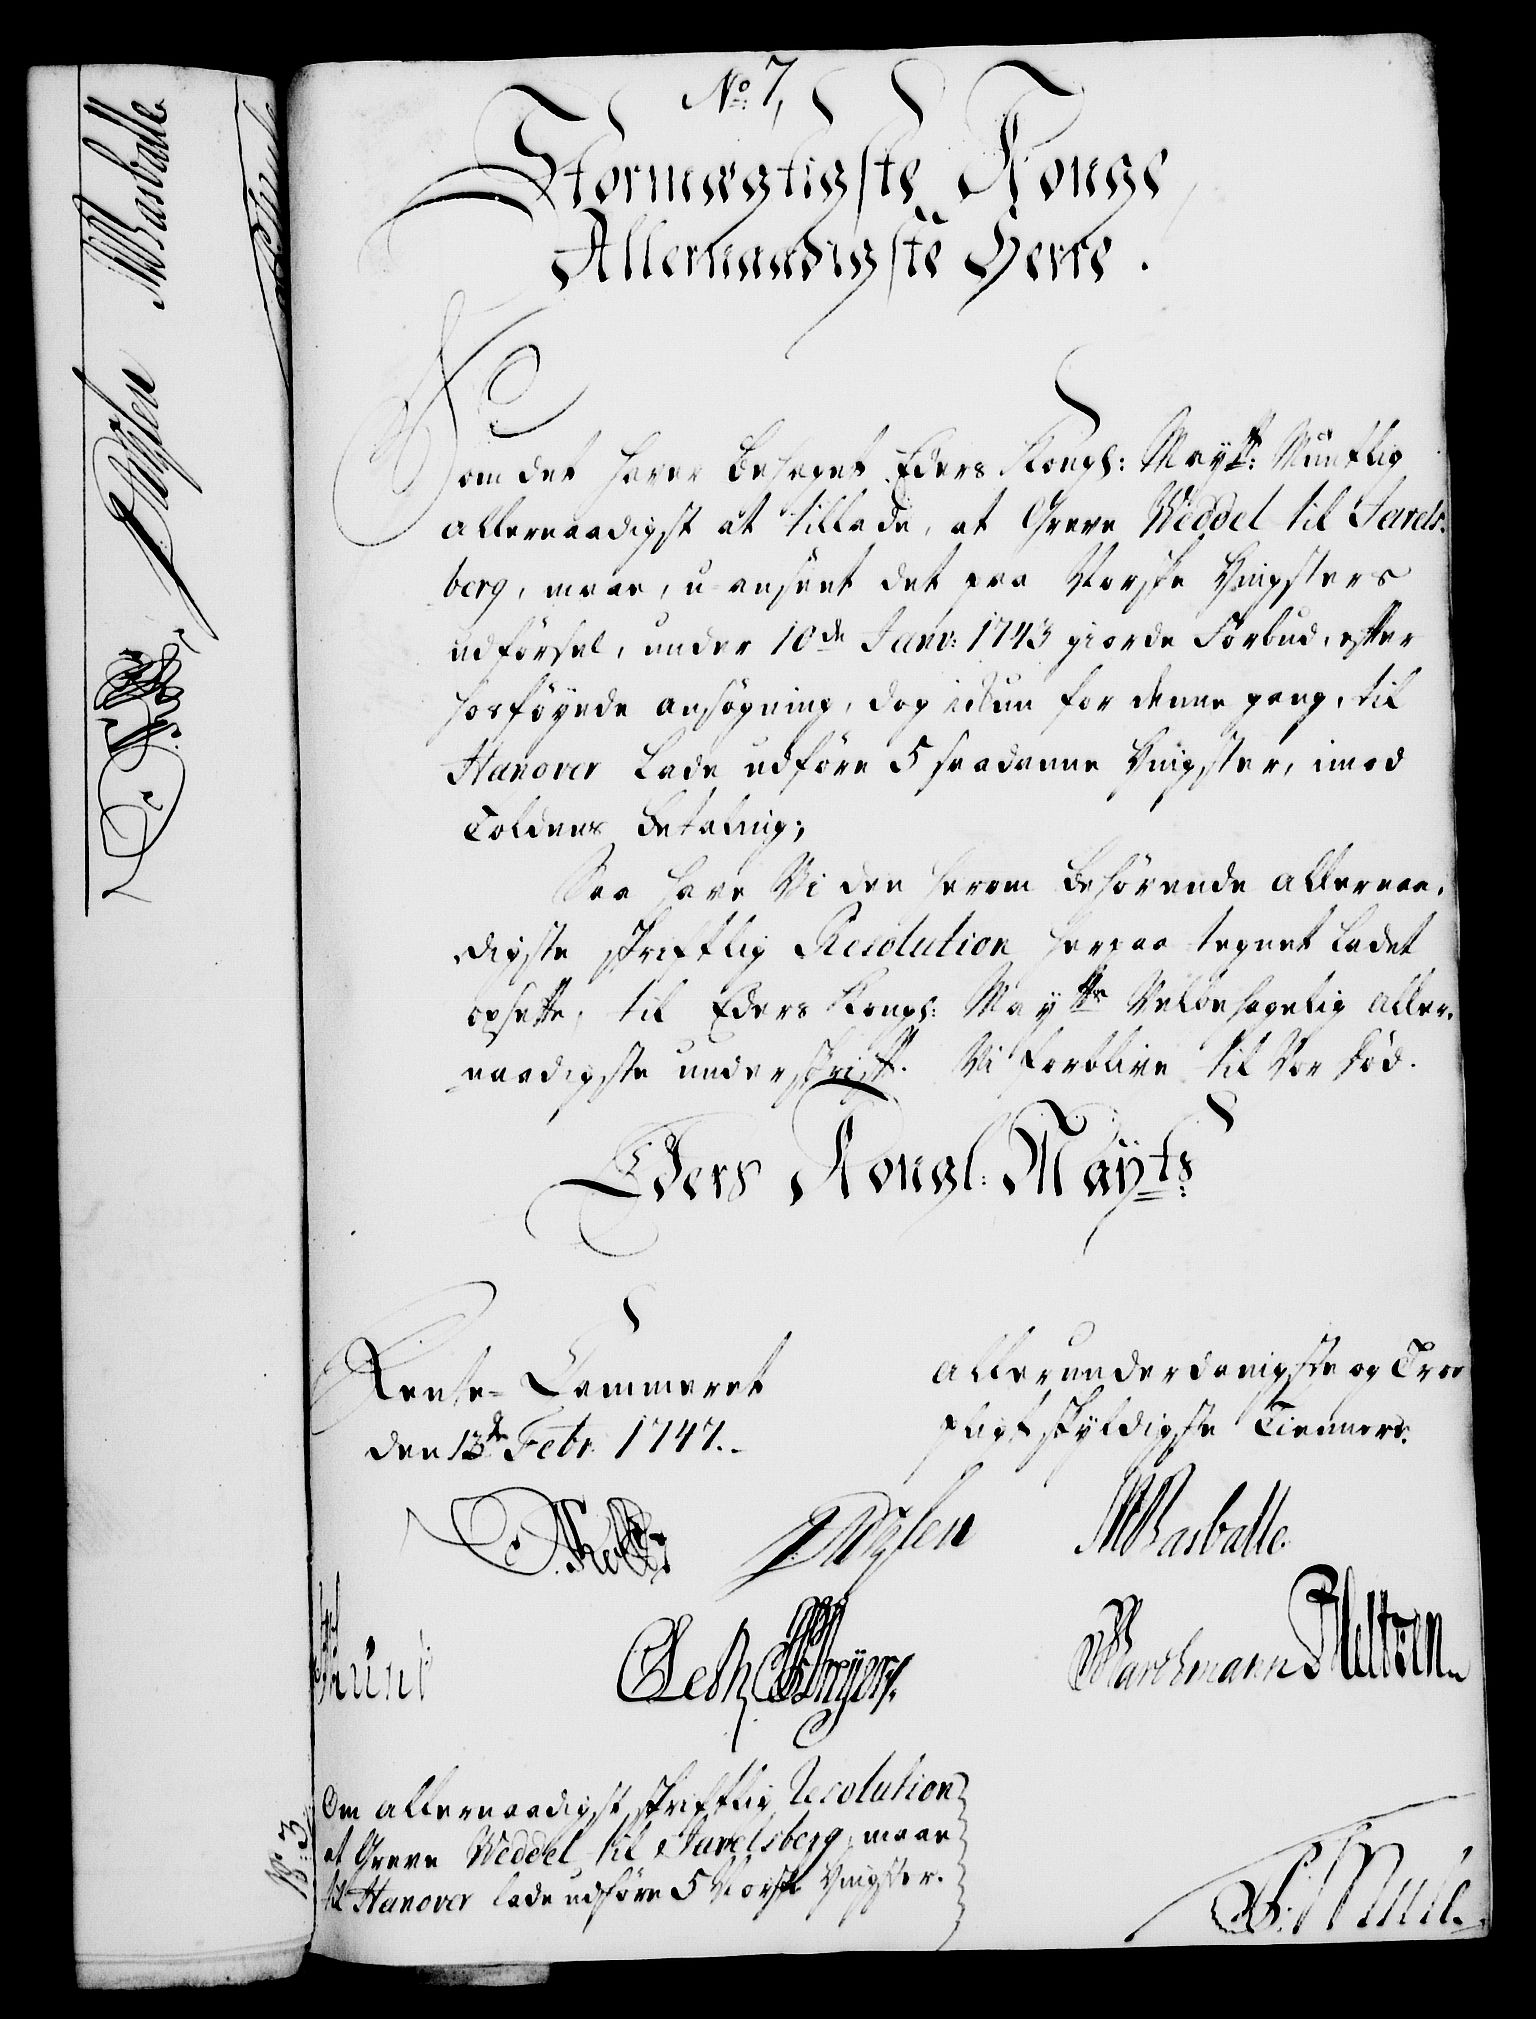 No 7,
Stormægtigste Konge
Allernaadigste Herre.
Som det haver behaget Eders Kongl: Mayts: Mundtlig
allernaadigst at tillade, at Greve Weddel til Jarels-
berg, maae, u-anseet det paa Norske Hingsters
udförsel, under 10de Janv: 1743 giorde Forbud, efter
hosföyede ansögning, dog ickun for denne gang, til
Hanover lade udföre 5 saadanne Hingster, imod
Toldens betaling;
Saa have Vi den herom behörende allernaa-
digste skriftlig Resolution herpaa tegnet ladet
opsette, til Eders Kongl: Mayts Velbehagelig aller-
naadigste underskrift. Vi forblive til Vor död.
Eders Kongl: Mayts:
Rente-Cammeret
den 13de Febr. 1747.
allerunderdanigste og Troe
pligtskyldigste Tiennere.
Rasballe.
Seth Meyer
Marckmann Meltzen
Om allernaadigst skriftlig Resolution
at Greve Weddel til Jarelsberg, maae
til Hanover lade udföre 5 Norske Hingster.
No 3